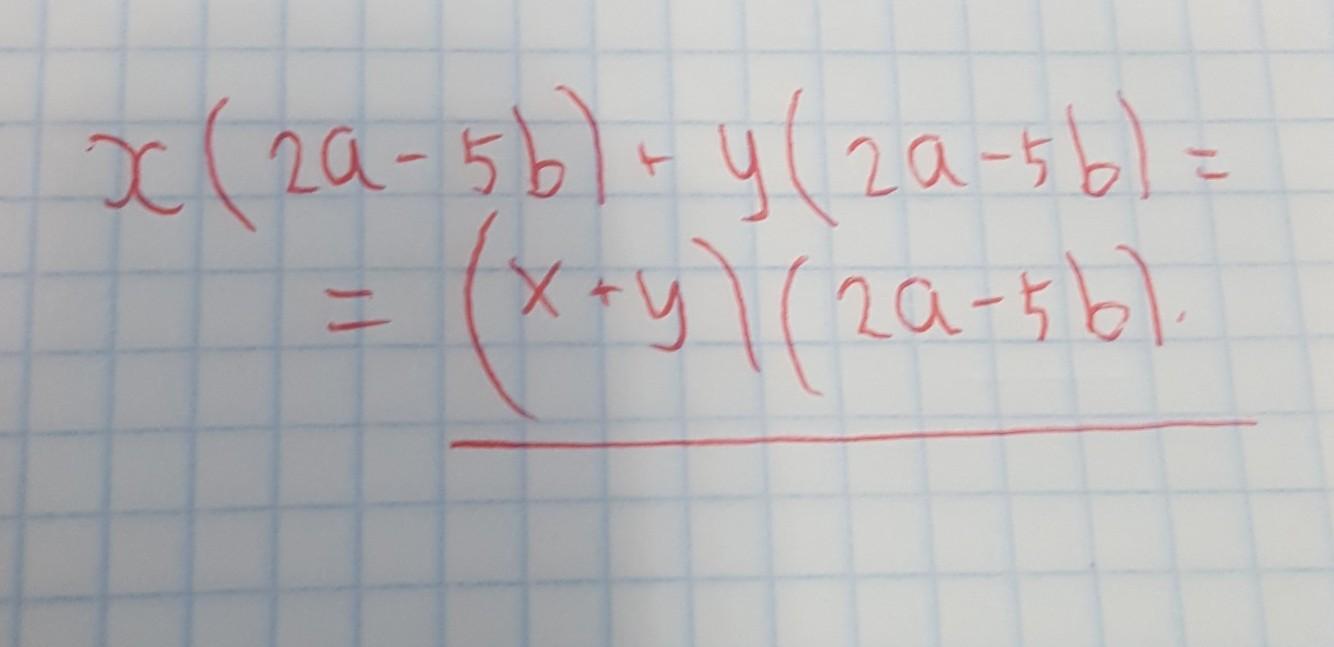 x(2a-5b)+y(2a-5b)=
=(x+y)(2a-5b).